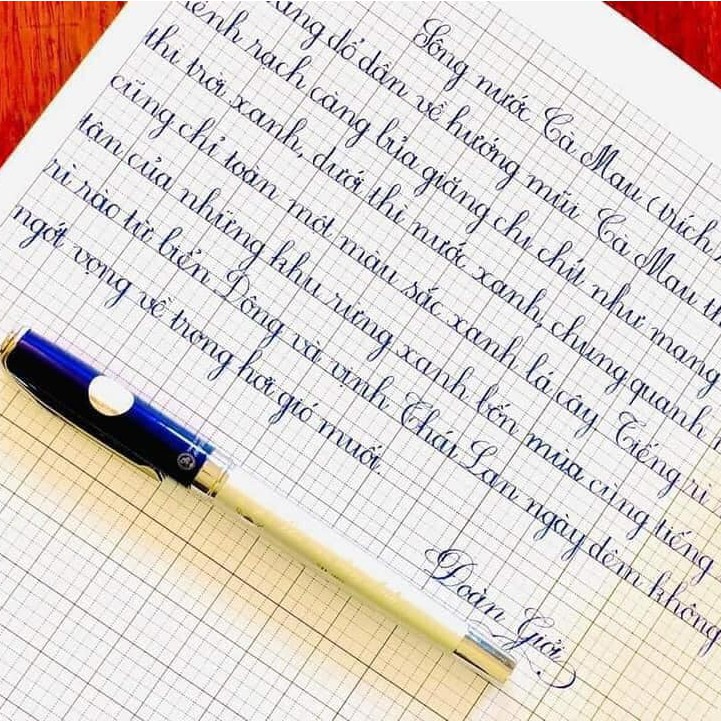 Sông nước Cà Mau (trích
àng đổ dần về hướng mũi Cà Mau th
ênh rạch càng bủa giăng chi chít như mạng
thì trời xanh, dưới thì nước xanh, chung quanh
cũng chỉ toàn một màu sắc xanh lá cây. Tiếng rì
tận của những khu rừng xanh bốn mùa cùng tiếng
rì rào từ biển Đông và vịnh Thái Lan ngày đêm không
ngớt vọng về trong hơi gió muối.
Đoàn Giỏi